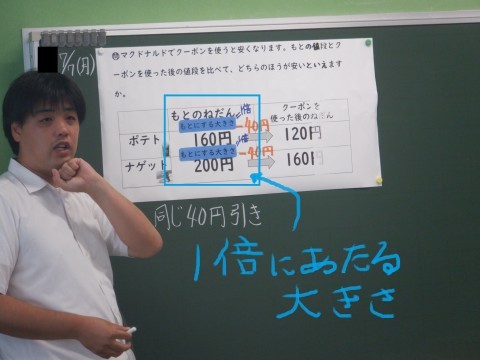 7/7(月)
問 マクドナルドでクーポンを使うと安くなります。もとの値段とク
ーポンを使った後の値段を比べて、どちらのほうが安いといえます
か。
もとのねだん クーポンを
使った後のねだん
もとにする大きさ 1倍
ポテト 160円 -40円 120円
もとにする大きさ 1倍
ナゲット 200円 -40円 160円
同じ40円引き
1倍にあたる
大きさ